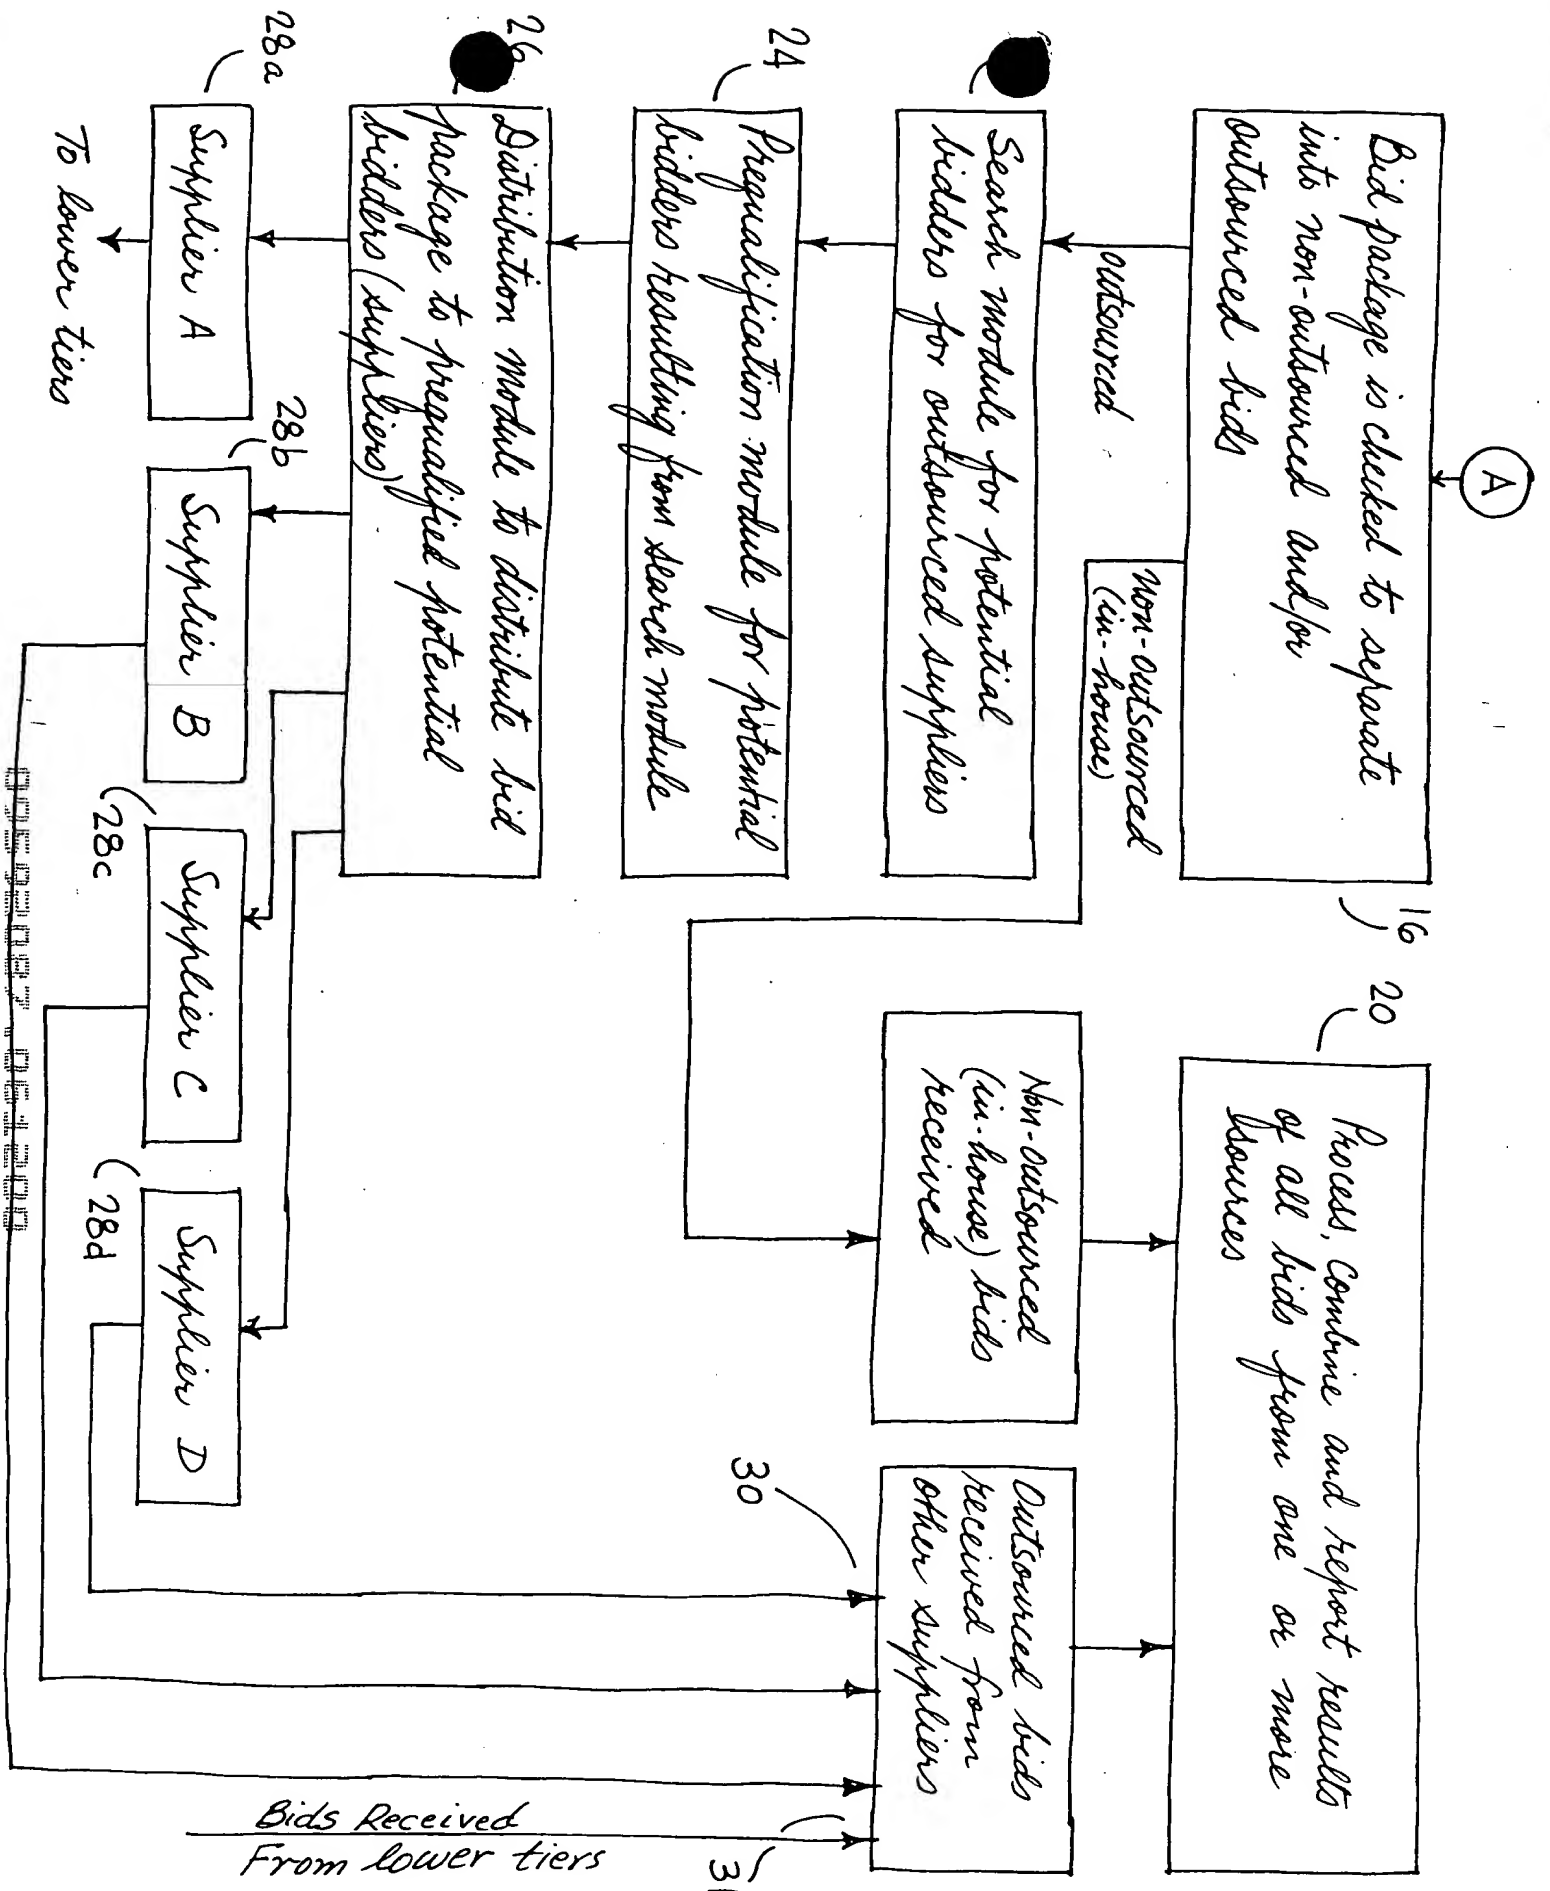 A
Bid package is checked to separate
into non-outsourced and/or
outsourced bids
16
outsourced
non-outsourced
(in-house)
Search module for potential
bidders for outsourced suppliers
24
Prequalification module for potential
bidders resulting from search module
26
Distribution module to distribute bid
package to prequalified potential
bidders (suppliers)
28a
Supplier A
To lower tiers
28b
Supplier B
28c
Supplier C
28d
Supplier D
20
Process, combine and report results
of all bids from one or more
sources
Non-outsourced
(in-house) bids
received
30
Outsourced bids
received from
other suppliers
Bids Received
From lower tiers